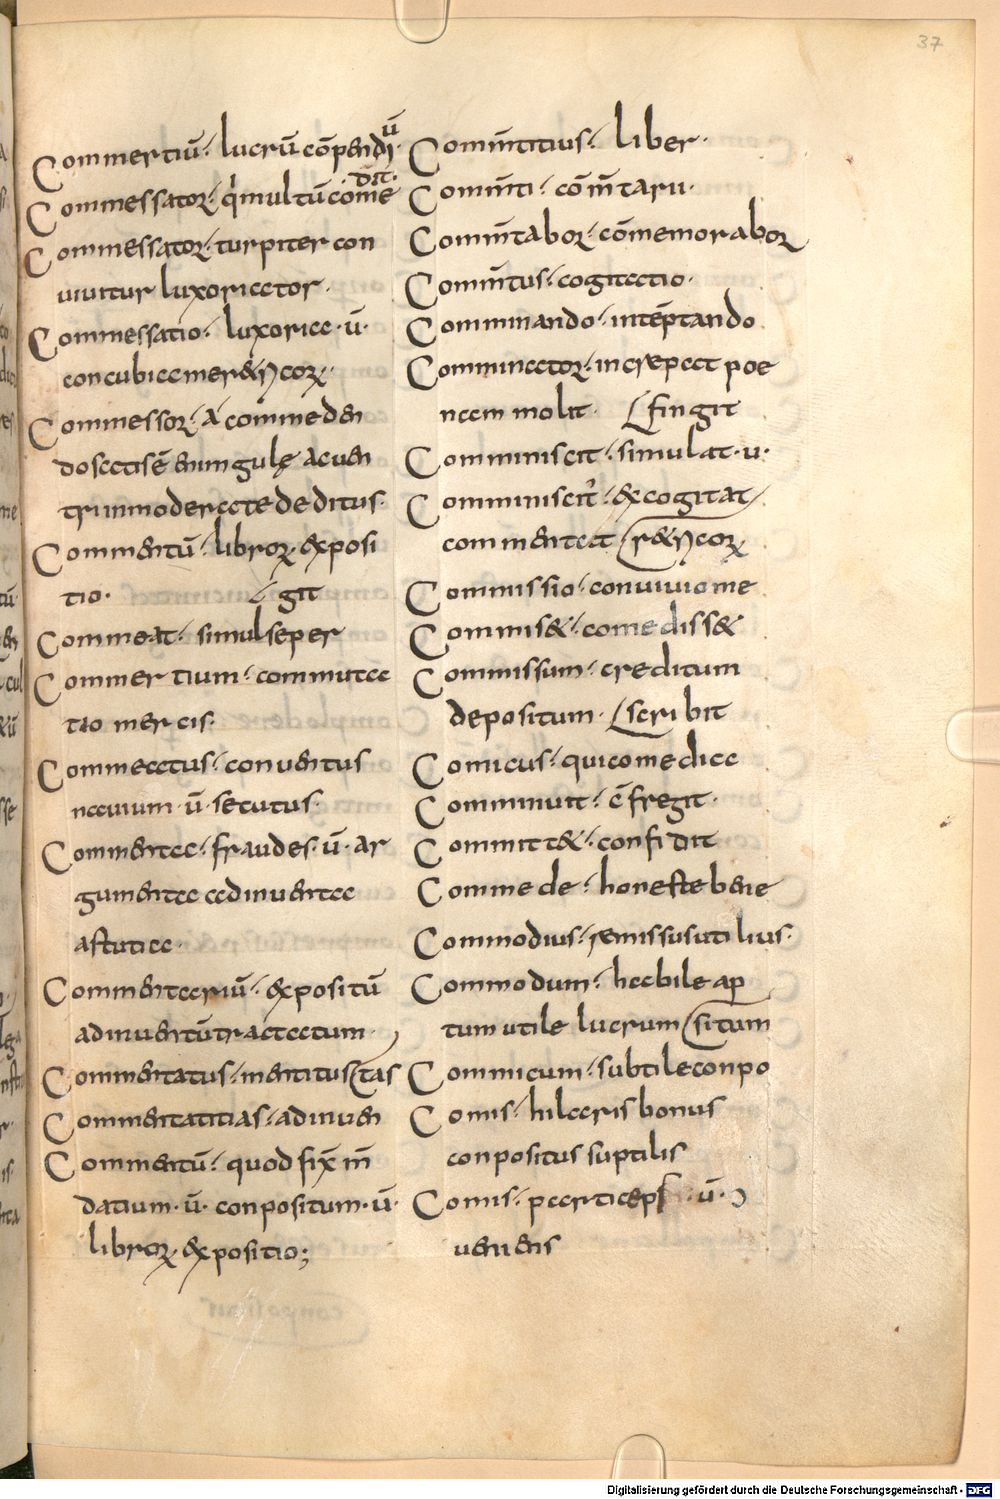 37
Commertiū· lucrū cōpendi ū
Commessator· q'multū come·dit·
Commessator· turpiter con
uiuitur luxoriator·
Commessatio· luxoria·ū·
concubia mer&ricor̄·
Commessor· A commeden
do satis ē enim gulę ac uen
tri inmoderate deditus·
Commentū· libror̄· exposi
tio·
Commeat· simul se per git
Commertium· commuta
tio mercis·
Commeatus· conuentus
nauium·ū·secutus·
Commenta· fraudes·ū·ar
gumenta adinuenta
astutia·
Commentariū· expositū
adinuentū tractatum·
Commentatus· mentitus
Commentatitias· adinuen tas
Commentū· quod fix̄ m̄
datium·ū·conpositum·ū·
libror̄· expositio;
Comm̄titius· liber·
Comm̄ti· cōm̄tarii·
Comm̄tabor· cōmemorabor
Comm̄tus· cogitatio·
Comminando· intēptando
Comminator· increpat poe
nam molit·
Comminiscit· simulat·u· fingit
Comminiscit̄· excogitat
commentat
Commissio· conuiuio me r&ricor̄
Commis&· comediss&
Commissum· creditum
depositum·
Comicus· qui comedia scribit
Comminuit· c̄fregit·
Committ&· confidit
Commede· honeste bene
Commodius· remissus utilius·
Commodum· habile ap
tum utile lucrum
Commicum· subtile conpo situm
Comis· hilaris bonus
conpositus suptilis
Comis· particeps·ū·Ↄ
ueniens
Digitalisierung gefördert durch die Deutsche Forschungsgemeinschaft - DFG